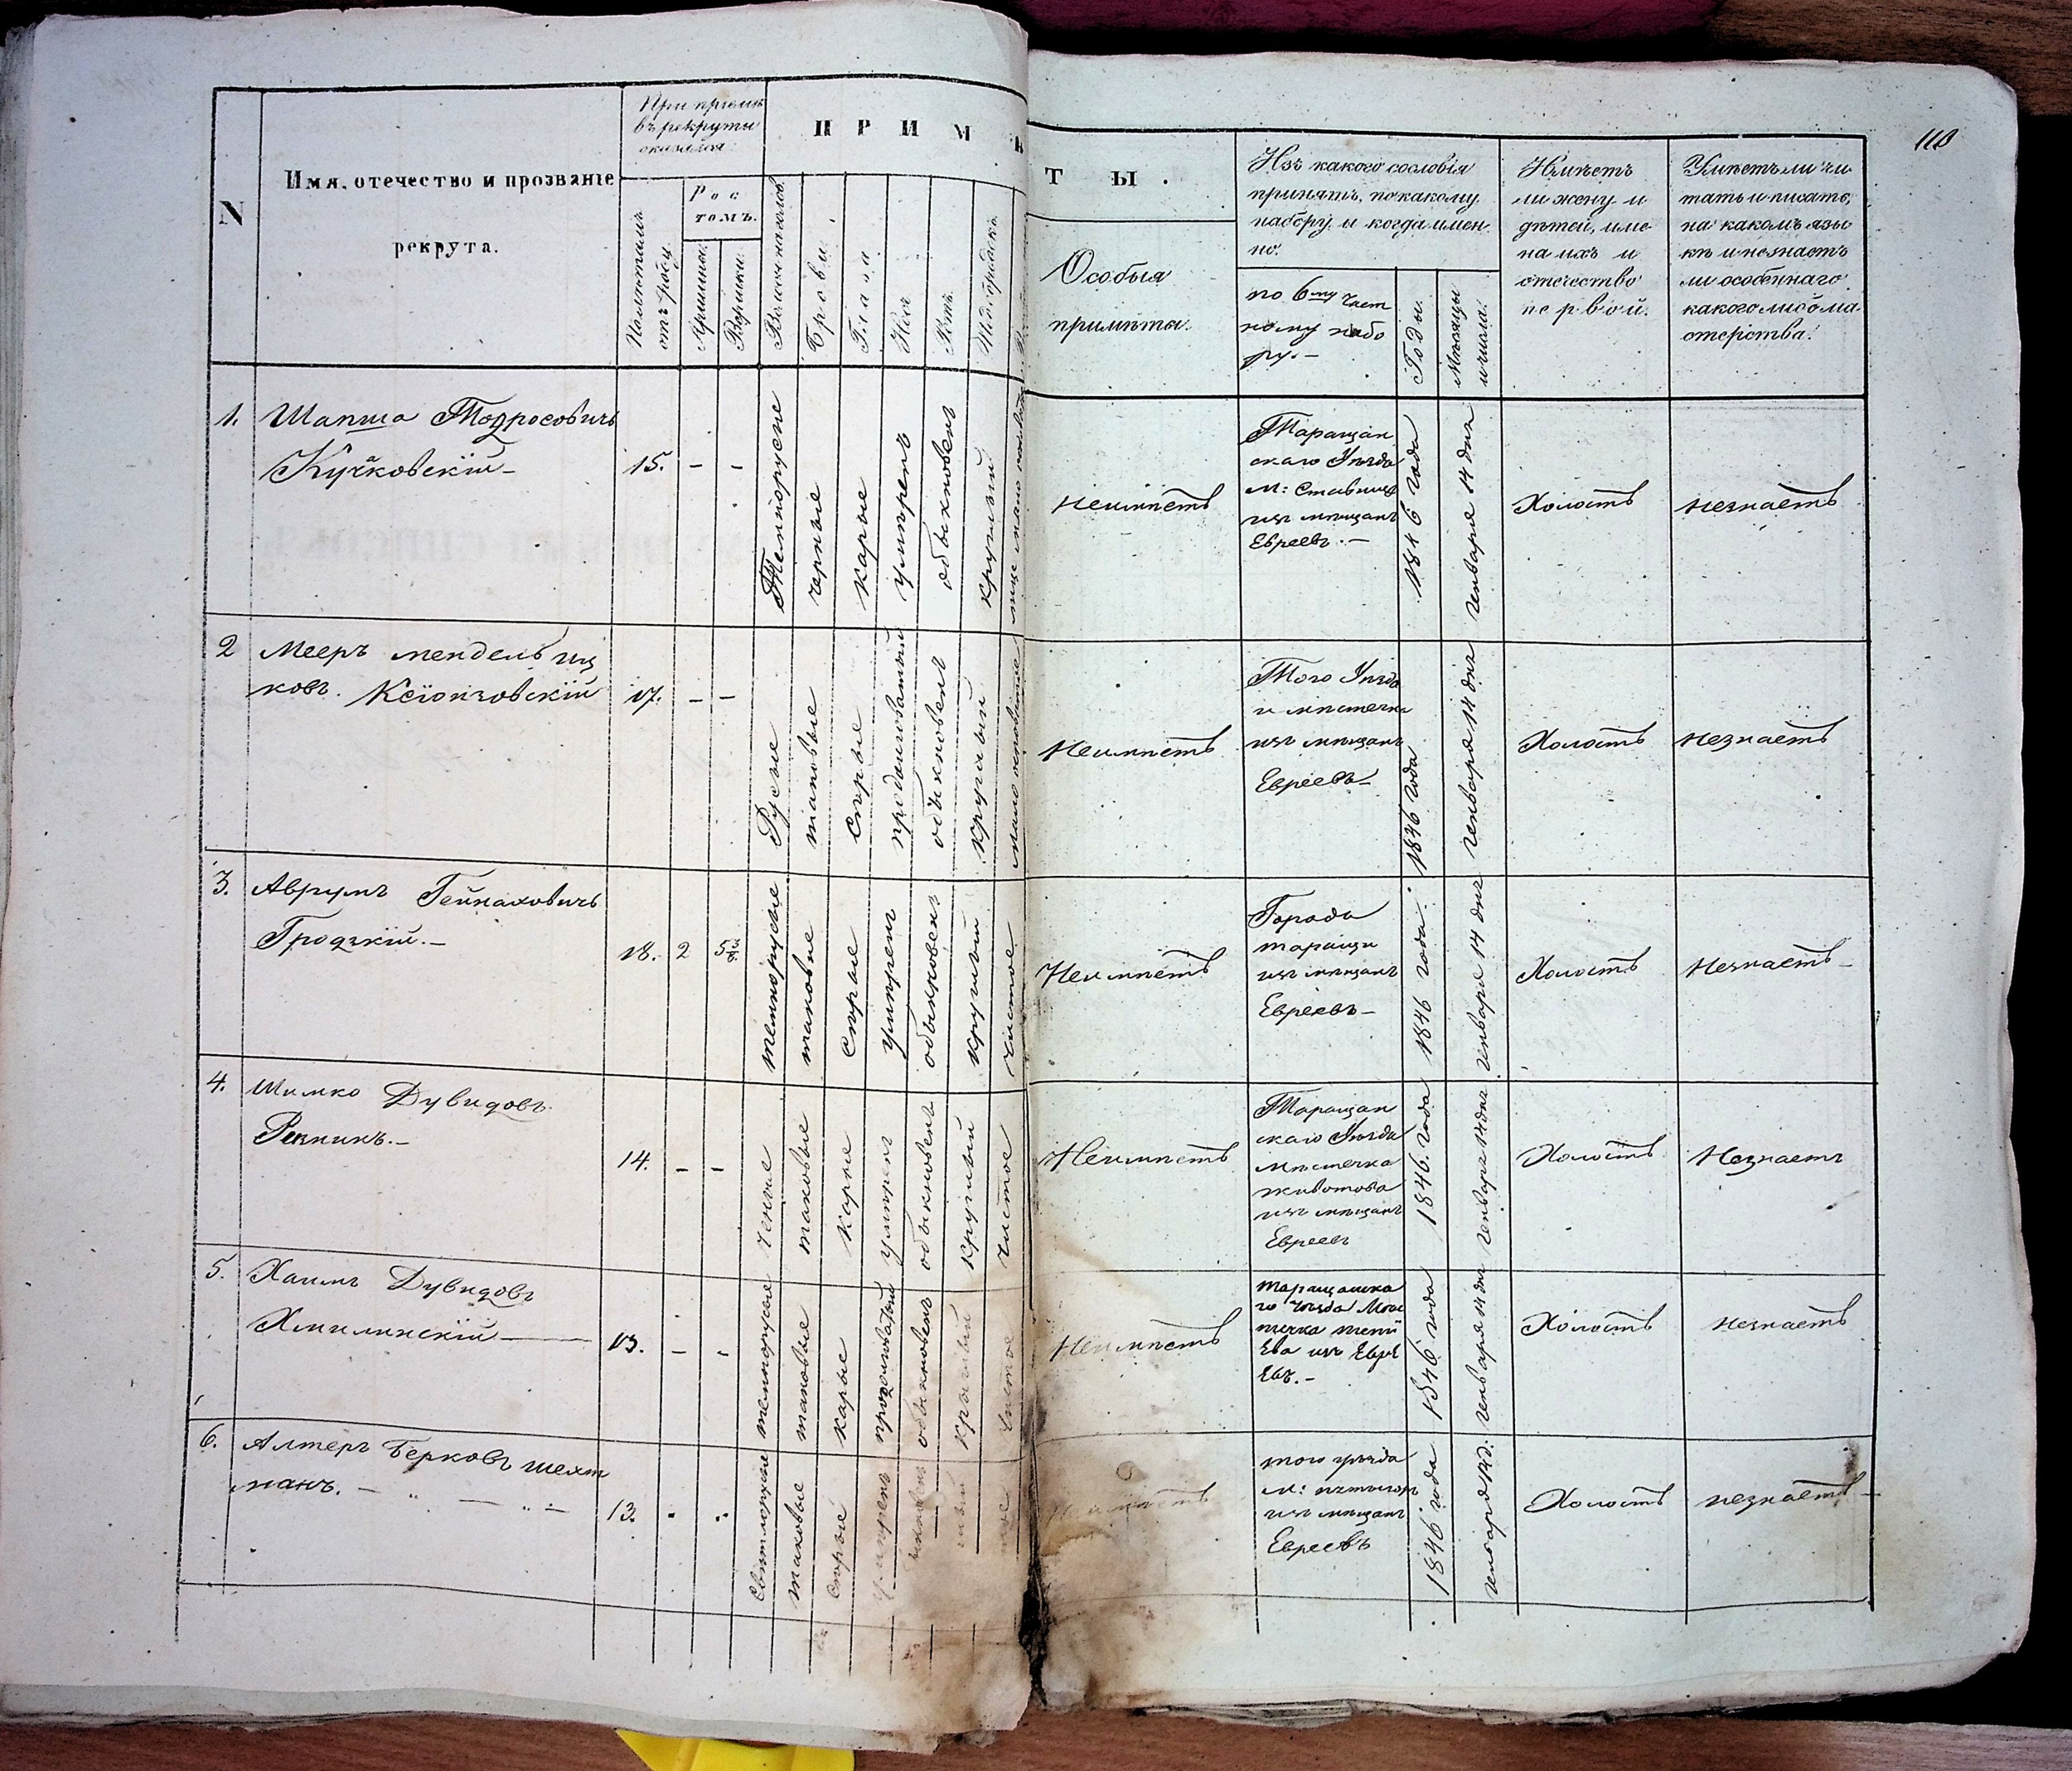 110
N
Имя, отечество и прозваніе
рекрута.
При пріемѣ
въ рекруты
оказался:
Полѣтамъ
отъ роду.
Рос
томъ.
Аршины.
Вершки.
Волосы на головѣ.
Брови.
Глаза
Носъ
Ротъ.
Подбородокъ.
ПРИМѢТЫ.
Особыя
примѣты.
Изъ какого сословія
принятъ, по какому
набору и когда имен
но.
по 6му част
ному набо
ру.-
Годы.
Мѣсяцы
и числа.
Имѣетъ
ли жену и
дѣтей, име-
на ихъ и
отечество
первой.
Умѣетъ ли чи
тать и писать,
на какомъ язы
кѣ и незнаетъ
ли особеннаго
какого либо ма
стерства.
1.
Шапша Тодросовичъ
Кучковскій-
15.
-
-
Темнорусые
черные
карые
умѣренъ
обыкновенъ
круглый
неимѣетъ
Таращан
скаго Уѣзда
М: Ставищъ
изъ мѣщанъ
Евреевъ.-
1846 года
Генваря 14 дня
Холостъ
незнаетъ
2
Мееръ Мендель Иц
ковъ. Ксіонзовскій
17.
-
-
Русые
таковые
Сѣрые
продолговатый
обыкновенъ
круглый
Неимѣетъ
Того Уѣзда
и мѣстечка
изъ мѣщанъ
Евреевъ-
1846 года
Генваря 14 дня
Холостъ
Незнаетъ
3.
Аврумъ Гейнаховичъ
Гродзкій.-
18.
2
5 4/8.
темнорусые
таковые
Сѣрые
умѣренъ
обыкновенъ
круглый
чистое
Неимѣетъ
Города
таращи
изъ мѣщанъ
Евреевъ-
1846 года.
Генваря 14 дня
Холостъ
Незнаетъ-
4.
Шимко Дувидовъ
Резникъ.-
14.
-
-
таковые
карые
умѣренъ
обыкновенъ
круглый
чистое
Неимѣетъ
Таращан
скаго Уѣзда
мѣстечка
животова
изъ мѣщанъ
Евреевъ
1846. года
Генваря 14 дня
Холостъ
Незнаетъ
5.
Хаимъ Дувидовъ
Хмилинскій
13.
-
-
темнорусые
таковые
карые
продолговатый
обыкновенъ
круглый
чистое
Неимѣетъ
Таращанска
го Уѣзда Мѣс
течка тетi
ева изъ Евре
евъ.-
1846 года
Генваря 14 дня
Холостъ
незнаетъ
6.
Алтеръ Берковъ Шехт
манъ. - " - " -
13.
Свѣтлорусые
таковые
сѣрые
Умѣренъ
того уѣзда
М: пятигор
изъ мѣщанъ
Евреевъ
1846 года
Генваря 14 д.
Холостъ
незнаетъ-